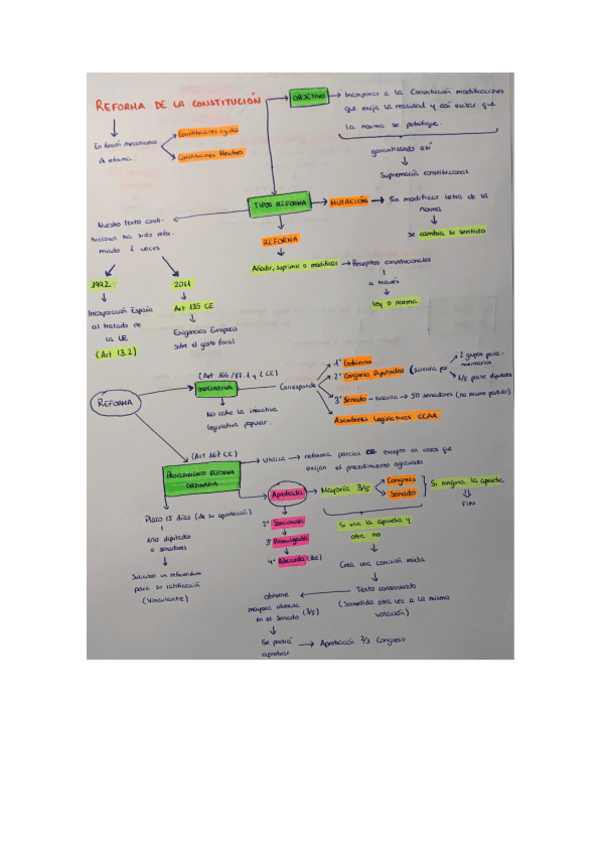 REFORMA DE LA CONSTITUCIÓN
OBJETIVO
Incorporar a la Constitución modificaciones
que exija la realidad y así evitar que
la norma se petrifique.
garantizando así
Supremacía constitucional
En función mecanismos
de reforma
Constituciones rígidas
Constituciones flexibles
TIPOS REFORMA
MUTACIÓN
Sin modificar letra de la
norma
Se cambia su sentido
REFORMA
Añadir, suprimir o modificar
Preceptos constitucionales
a través
Ley o norma
Nuestro texto consti-
tucional ha sido refor-
mado 2 veces
1992
Incorporación España
al tratado de
la UE
(Art 13.2)
2011
Art 135 CE
Exigencias Europeas
sobre el gasto fiscal
REFORMA
(Art. 166/87.1 y 2 CE)
INICIATIVA
No cabe la iniciativa
legislativa popular.
Corresponde
1º Gobierno
2º Congreso Diputados (suscrita por
2 grupos parla-
mentarios
1/5 parte diputados
3º Senado - suscrita → 50 senadores (no mismo partido)
Asambleas Legislativas CCAA
(Art 167 CE)
PROCEDIMIENTO REFORMA
ORDINARIA
Utiliza
reforma parcial CE excepto en casos que
exijan el procedimiento agravado
Aprobada
Mayoría 3/5
Congreso
Senado
Si ninguna la aprueba
FIN
2º Sancionada
3º Promulgada
4º Publicada (BOE)
Si una la aprueba y
otra no
Crea una comisión mixta
Texto consensuado
(Sometido otra vez a la misma
votación)
obtiene
mayoría absoluta
en el Senado (3/5)
Se podrá
aprobar
Aprobación 2/3 Congreso
Plazo 15 días (de su aprobación)
1/10 diputados
o senadores
Solicitar un referendum
para su ratificación
(Vinculante)